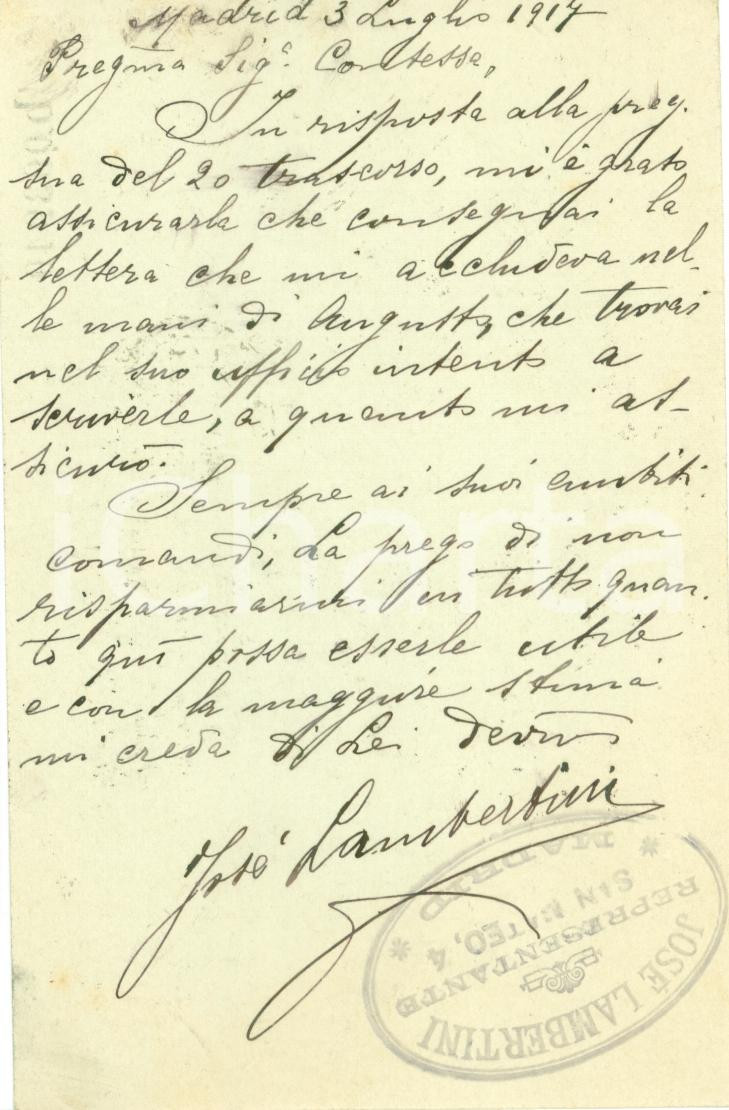 Madrid 3 Luglio 1917
Pregma Siga. Contessa,
In risposta alla preg.
sua del 20 trascorso, mi è grato
assicurarla che consegnai la
lettera che mi accludeva nel-
le mani di Augusto, che trovai
nel suo ufficio intento a
scriverle, a quanto mi as-
sicurò.
Sempre ai suoi ambiti
comandi, La prego di non
risparmiarmi in tutto quan-
to qui possa esserle utile
e con la maggiore stima
mi creda di Lei devmo
José Lambertini
JOSÉ LAMBERTINI
REPRESENTANTE
SAN MATEO, 4
* MADRID *
iCharta